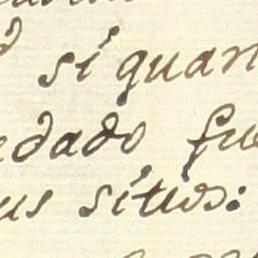 si quan
edado fue
us sitios: